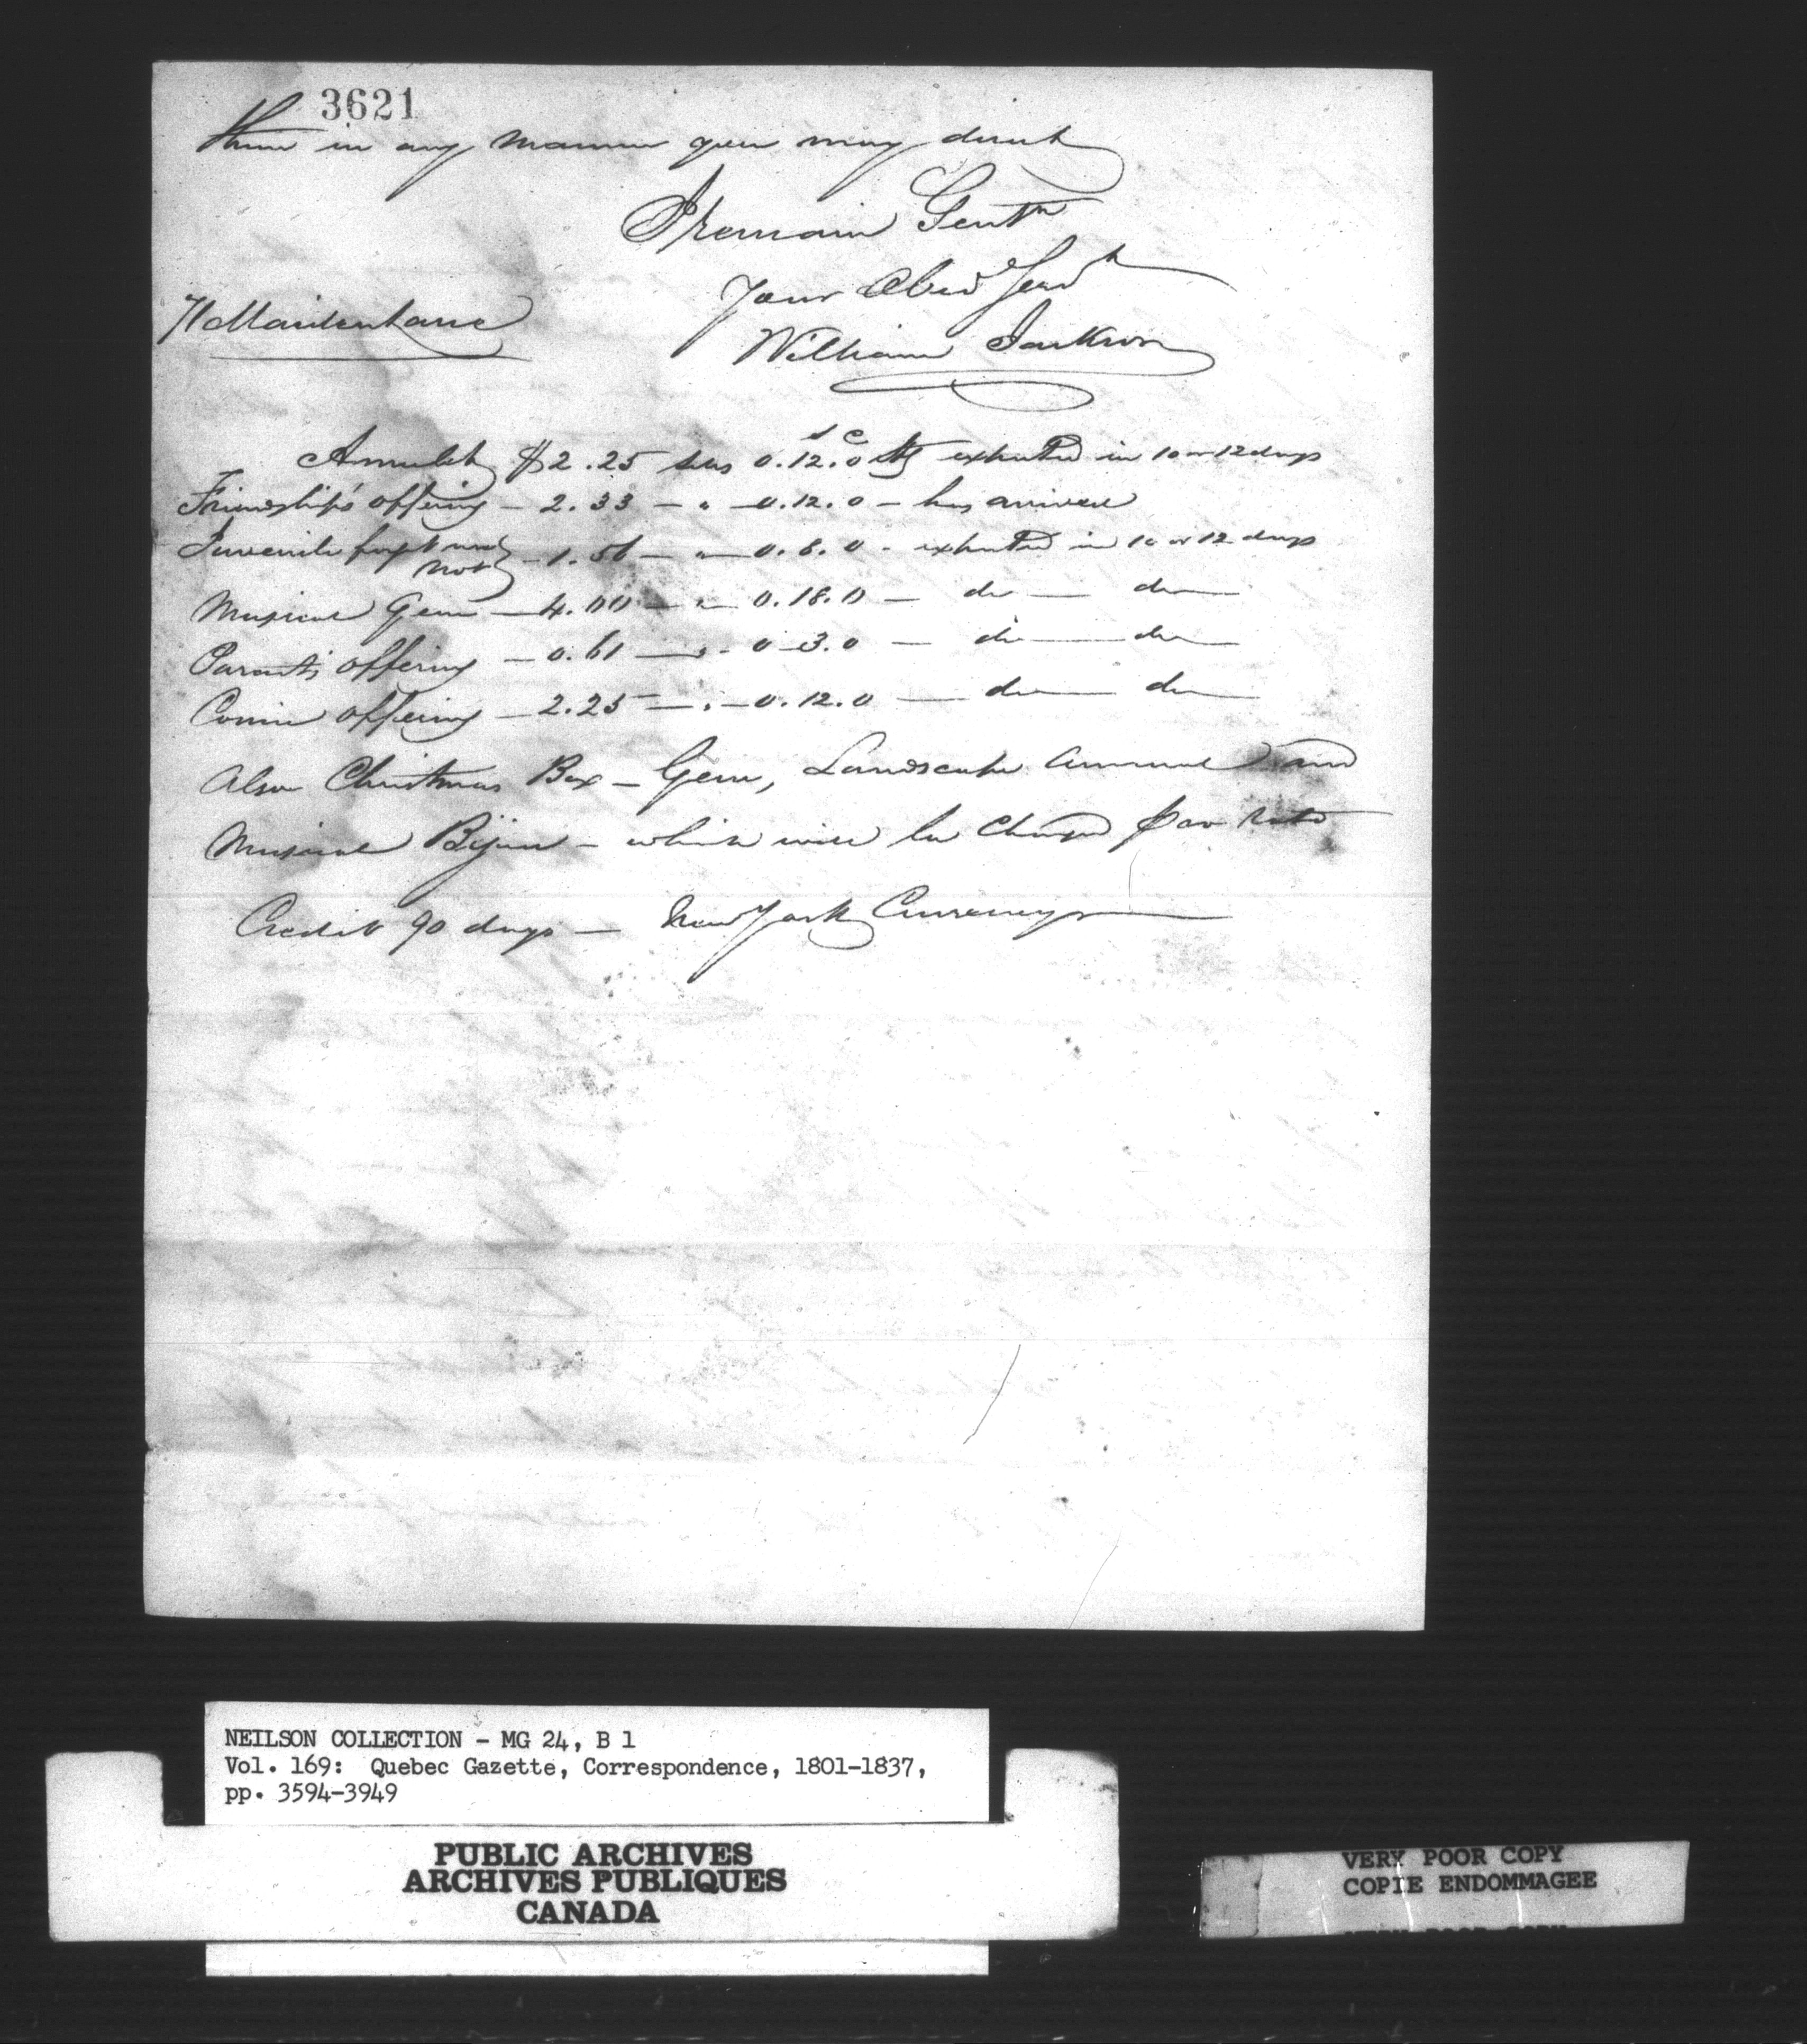 3621
them in any manner you may direct
I remain Gentn
Your Obed Servt
71 Maiden Lane
William Jackson
s c
Amulet $2.25 sells 0.12.0 Stg expected in 10 or 12 days
Friendship's offering - 2.33 - " - 0.12.0 - has arrived
Juvenile forget me not - 1.56 - " - 0.8.0 - expected in 10 or 12 days
Musical Gem - 4.00 - " - 0.18.0 - do - do
Parents offering - 0.61 - " - 0-3.0 - do - do
Comic offering - 2.25 - " - 0.12.0 - do - do
Also Christmas Box - Gem, Landscape Annual and
Musical Bijou - which will be charged pro rata
Credit 90 days - New York Currency
NEILSON COLLECTION - MG 24, B 1
Vol. 169: Quebec Gazette, Correspondence, 1801-1837,
pp. 3594-3949
PUBLIC ARCHIVES
ARCHIVES PUBLIQUES
CANADA
VERY POOR COPY
COPIE ENDOMMAGEE